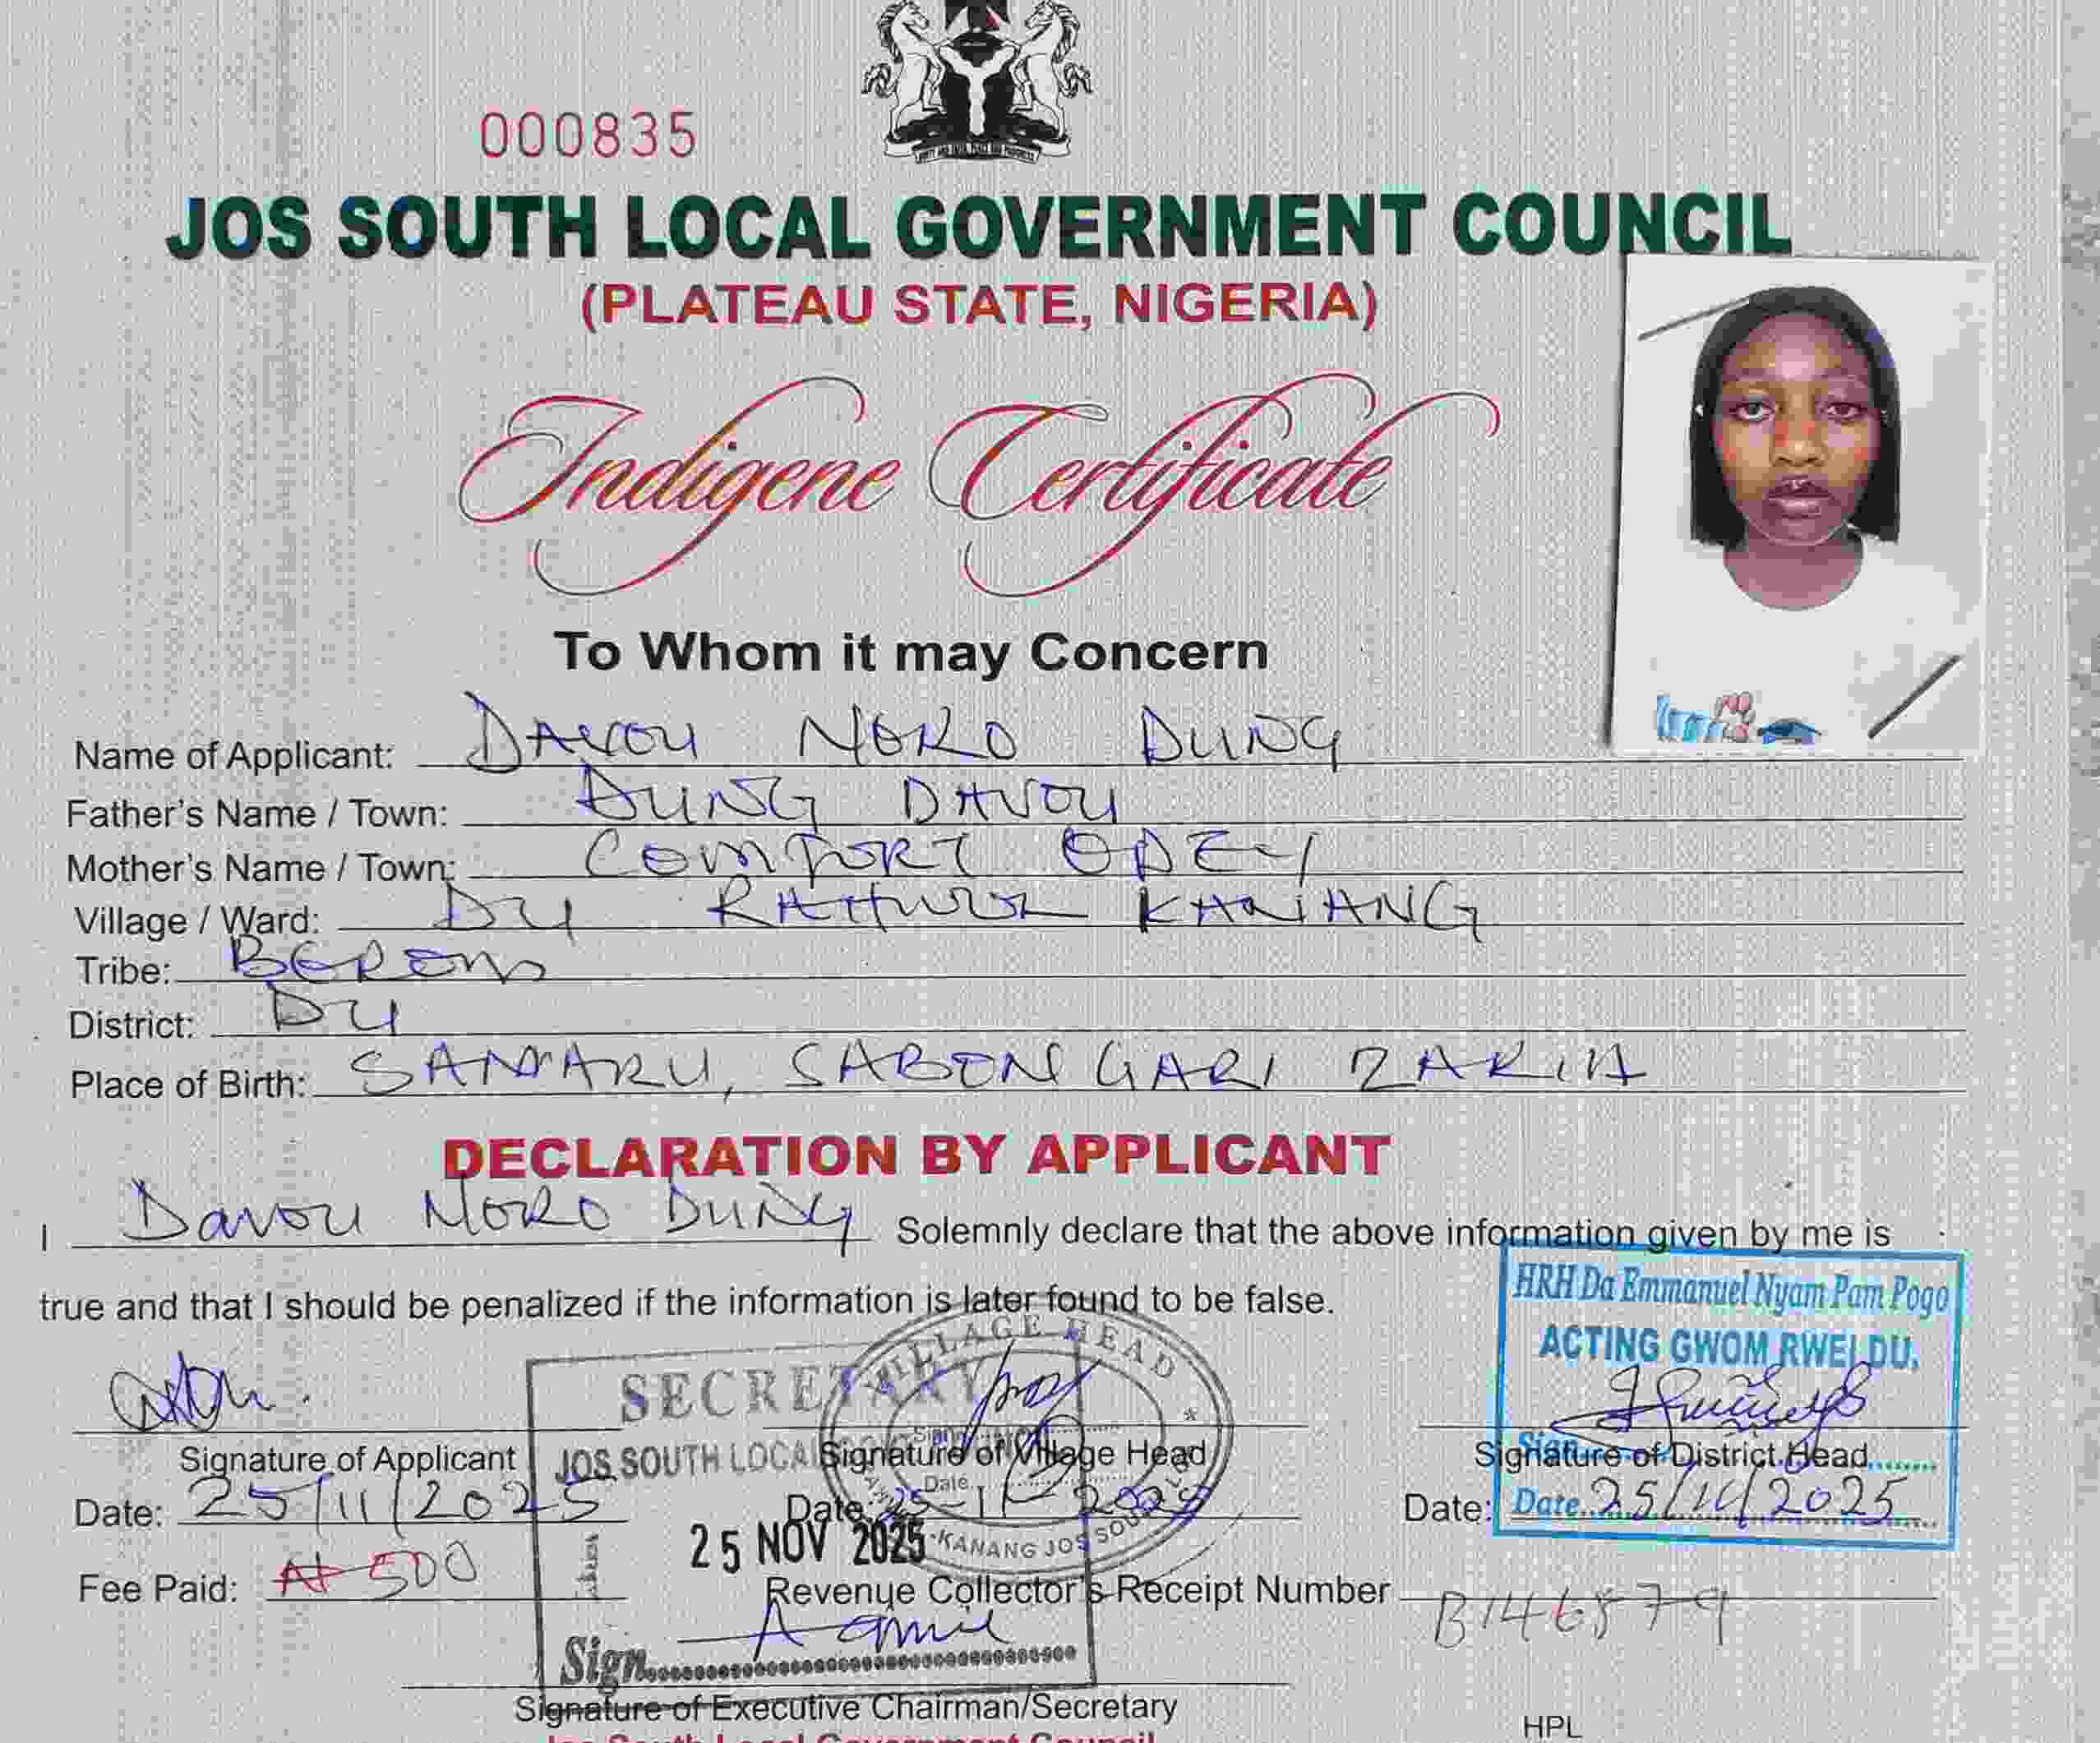 000835
JOS SOUTH LOCAL GOVERNMENT COUNCIL
(PLATEAU STATE, NIGERIA)
Indigene Certificate
To Whom it may Concern
Name of Applicant: DAVOU NORO DUNG
Father's Name / Town: DUNG DAVOU
Mother's Name / Town: COMFORT ODEY
Village / Ward: DU KANANG
Tribe: BEROM
District: DU
Place of Birth: SAMARU, SABON GARI ZARIA
DECLARATION BY APPLICANT
I Davou NORO DUNG Solemnly declare that the above information given by me is
true and that I should be penalized if the information is later found to be false.
HRH Da Emmanuel Nyam Pam Pogo
ACTING GWOM RWEI DU.
VILLAGE HEAD
SECRETARY
JOS SOUTH LOCAL
Signature of Applicant Signature of Village Head Signature of District Head
Sign
Date
Date: 25/11/2025 Date: Date: Date 25/11/2025
25 NOV 2025
KANANG JOS SOUTH
Fee Paid: ₦ 500 Revenue Collector's Receipt Number B146879
Sign
Signature of Executive Chairman/Secretary
Jos South Local Government Council
HPL